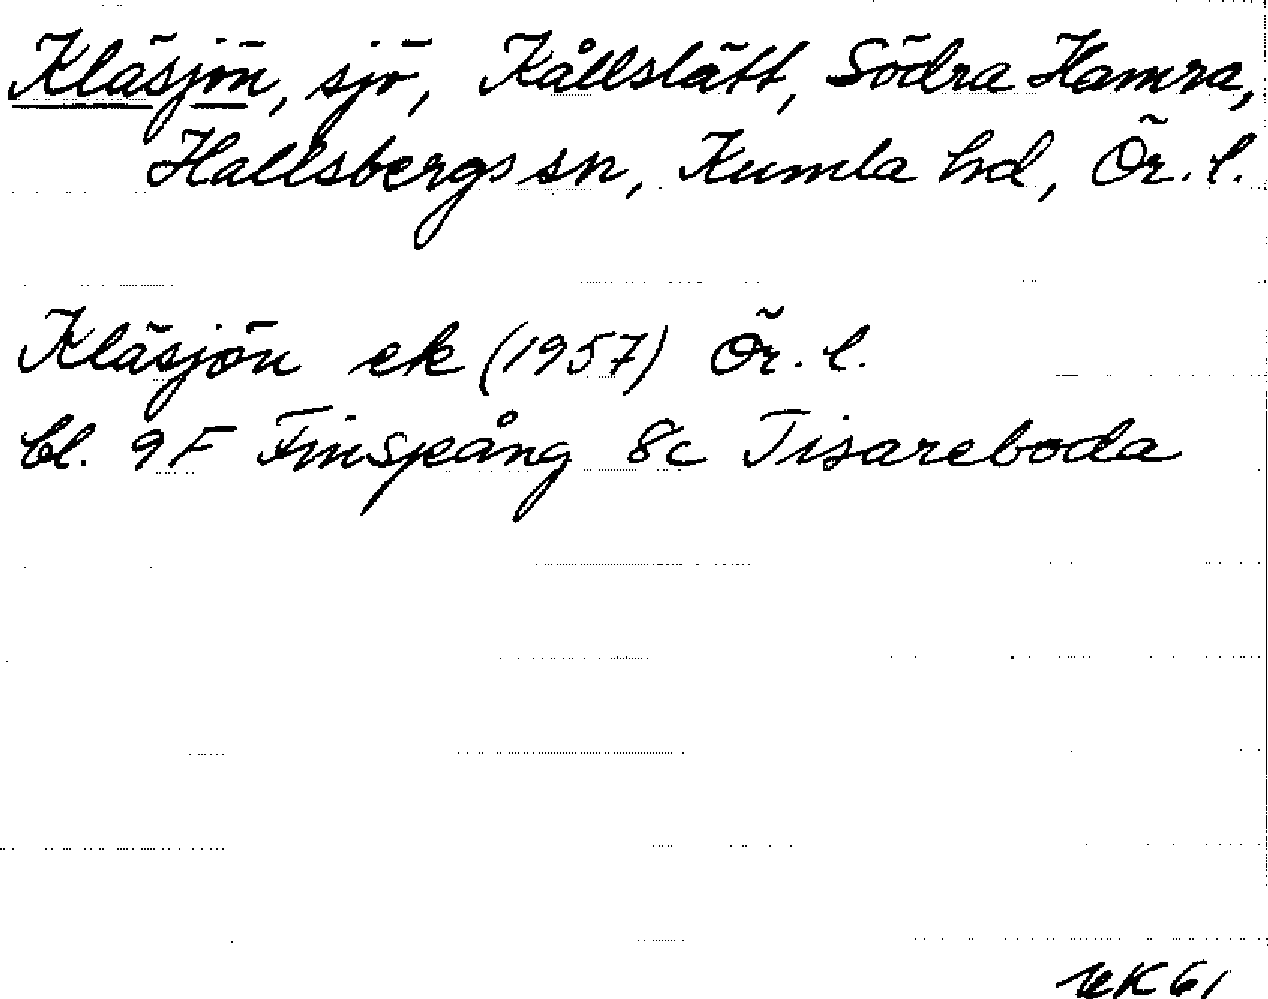 Kläsjön, sjö, Kållslätt, Södra Hamra,
Hallsbergs sn, Kumla hd, Ör. l.
Kläsjön ek (1957) Ör. l.
bl. 9F Finspång 8c Tisareboda